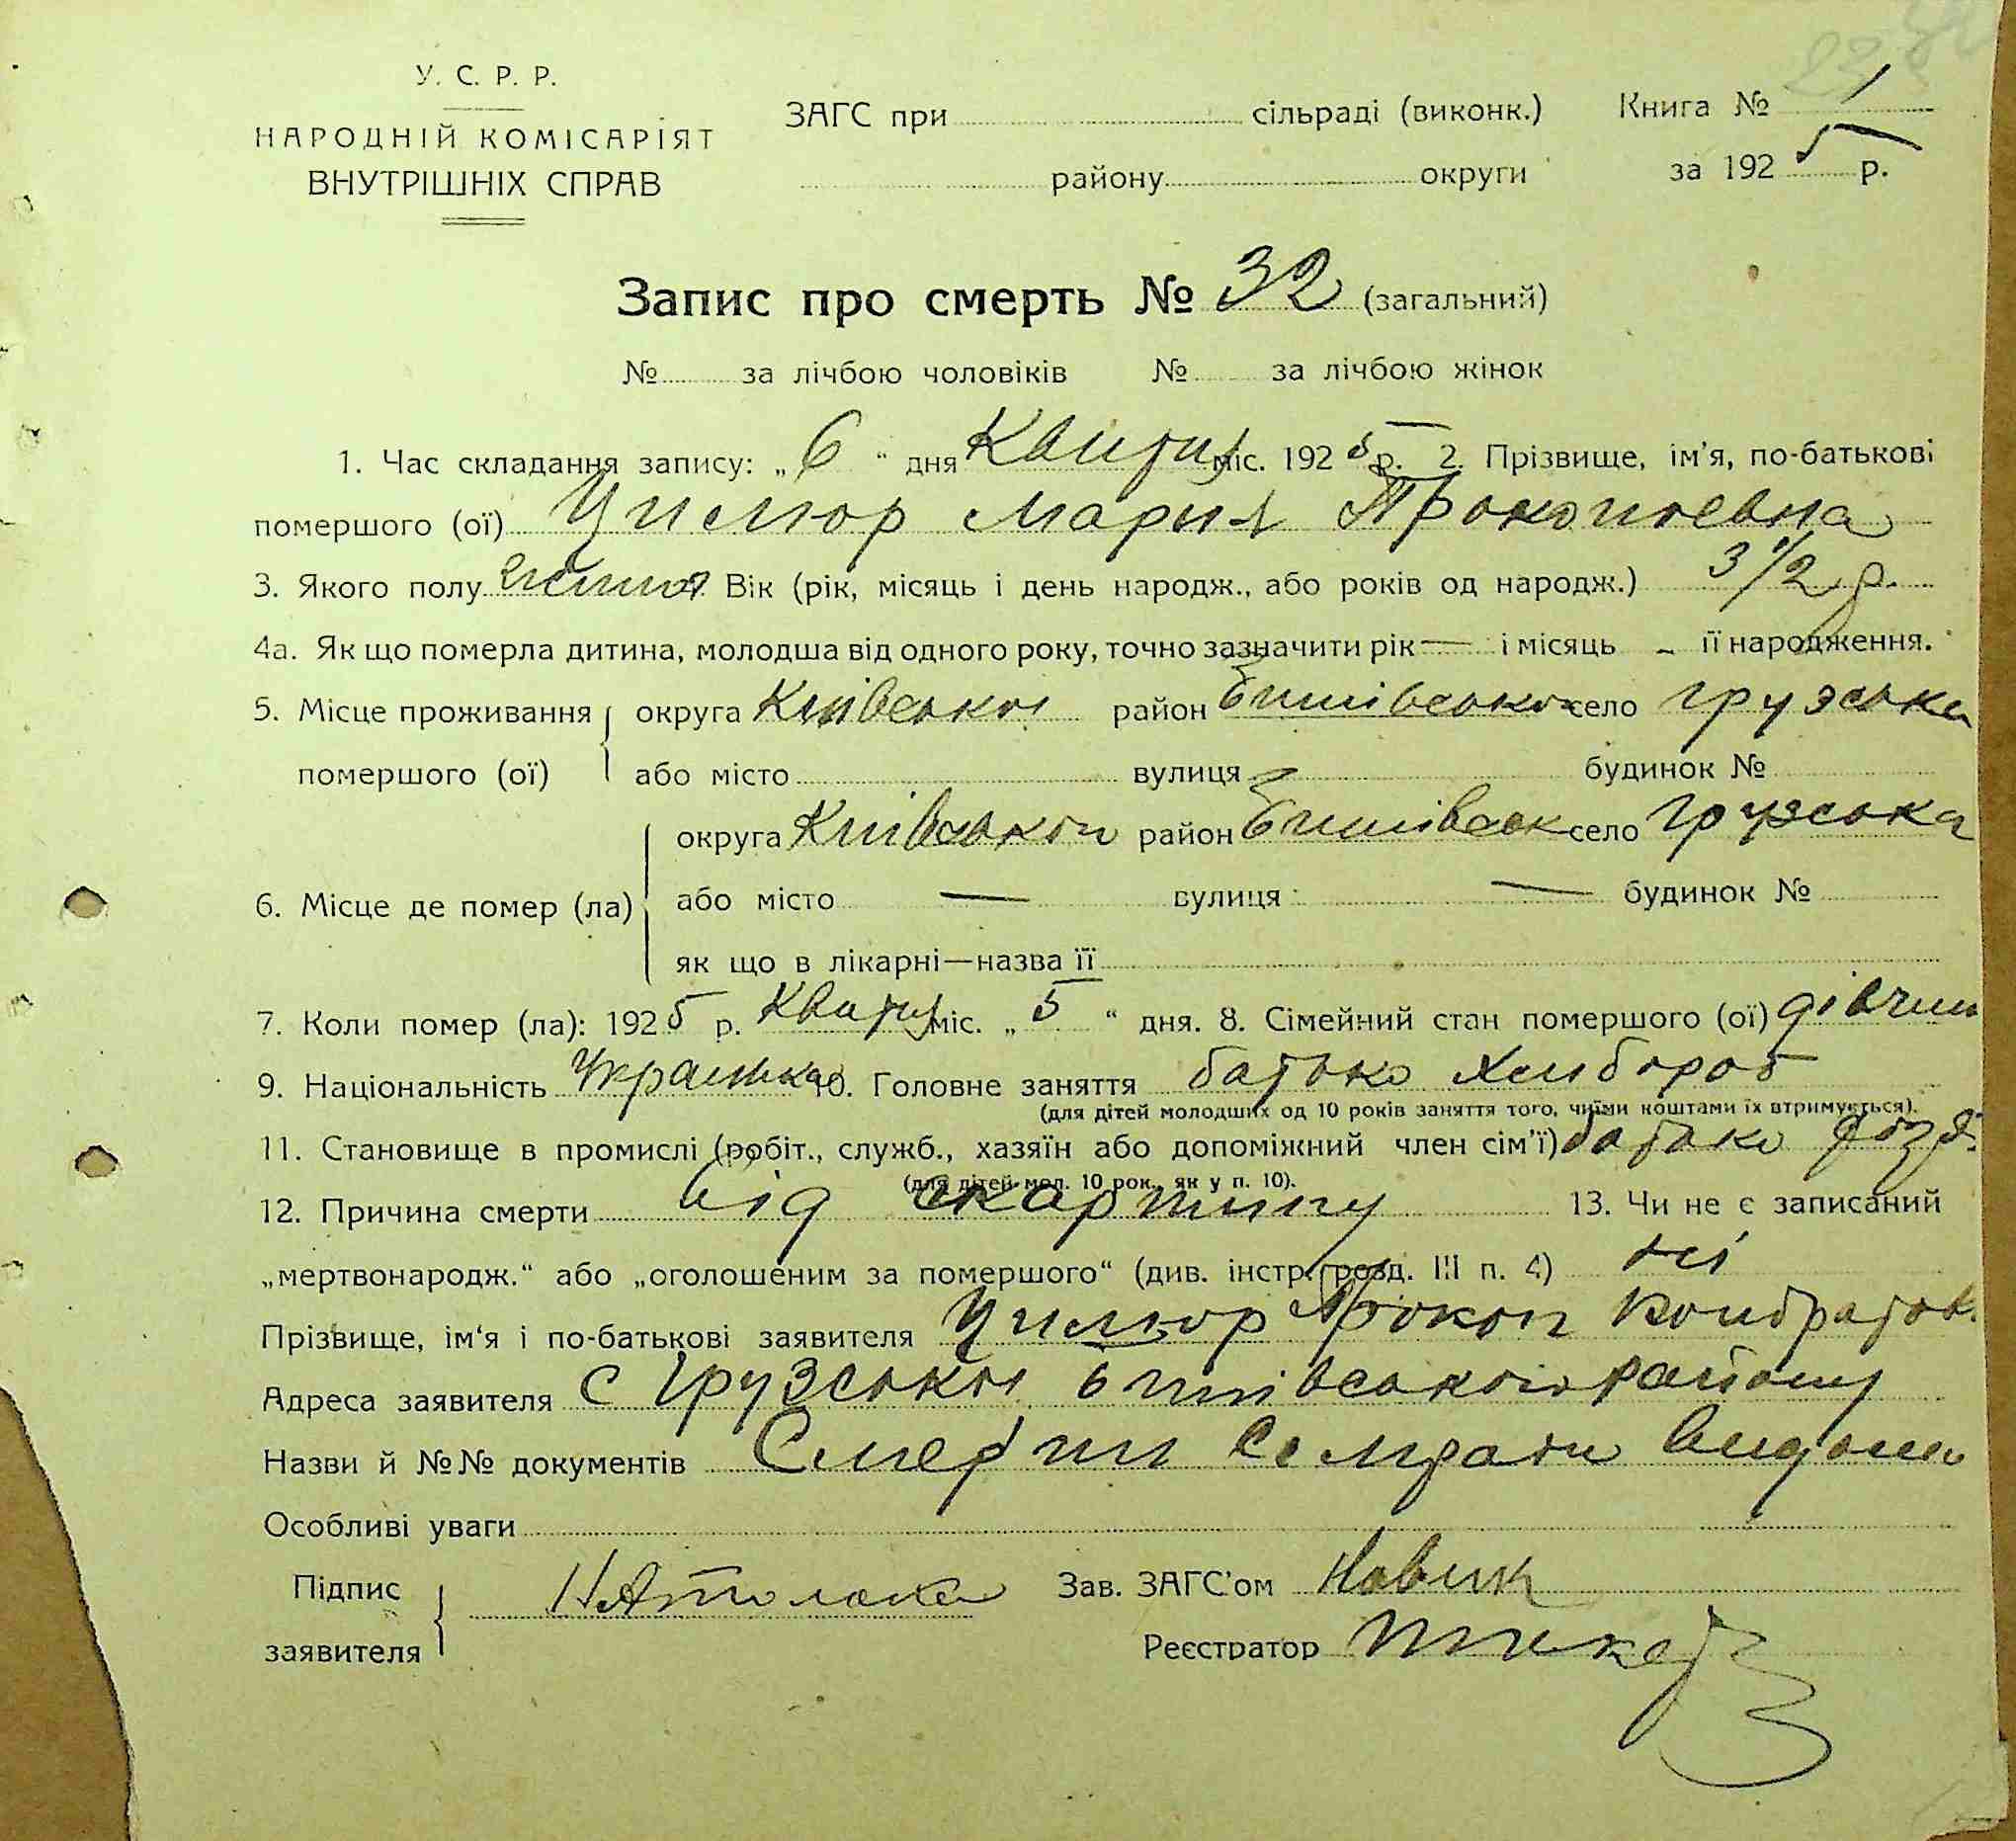 У. С. Р. Р.
НАРОДНІЙ КОМІСАРІЯТ
ВНУТРІШНІХ СПРАВ
ЗАГС при сільраді (виконк.)
району округи
Книга № 1
за 1925 р.
Запис про смерть № 32 (загальний)
№ за лічбою чоловіків № за лічбою жінок
1. Час складання запису: „6“ дня Квітня міс. 1925 р. 2. Прізвище, ім'я, по-батькові
помершого (ої) Цимюр Мария Прокопиевна
3. Якого полу Вік (рік, місяць і день народж., або років од народж.) 3 1/2 р.
4а. Як що померла дитина, молодша від одного року, точно зазначити рік — і місяць - її народження.
5. Місце проживання округа Київської район Бишівського село Грузська
помершого (ої) або місто вулиця будинок №
округа Київської район Бишівськ село Грузська
6. Місце де помер (ла) або місто — вулиця — будинок №
як що в лікарні—назва її
7. Коли помер (ла): 1925 р. Квітня міс. „5“ дня. 8. Сімейний стан помершого (ої) дівчин
9. Національність Українка 10. Головне заняття батько Хлібороб
(для дітей молодших од 10 років заняття того, чиїми коштами їх втримується).
11. Становище в промислі (робіт., служб., хазяїн або допоміжний член сім'ї) батько
(для дітей мол. 10 рок., як у п. 10).
12. Причина смерти від скартину 13. Чи не є записаний
„мертвонародж.“ або „оголошеним за помершого“ (див. інстр. розд. III п. 4) ні
Прізвище, ім'я і по-батькові заявителя Цимюр Прокоп Кондратов.
Адреса заявителя с Грузської Бишівського району
Назви й №№ документів
Особливі уваги
Підпис
заявителя
Зав. ЗАГС'ом Новик
Реєстратор